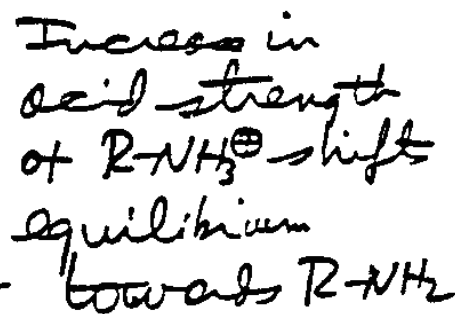 Increase in
acid strength
of R-NH₃⊕ shifts
equilibrium
- towards R-NH₂